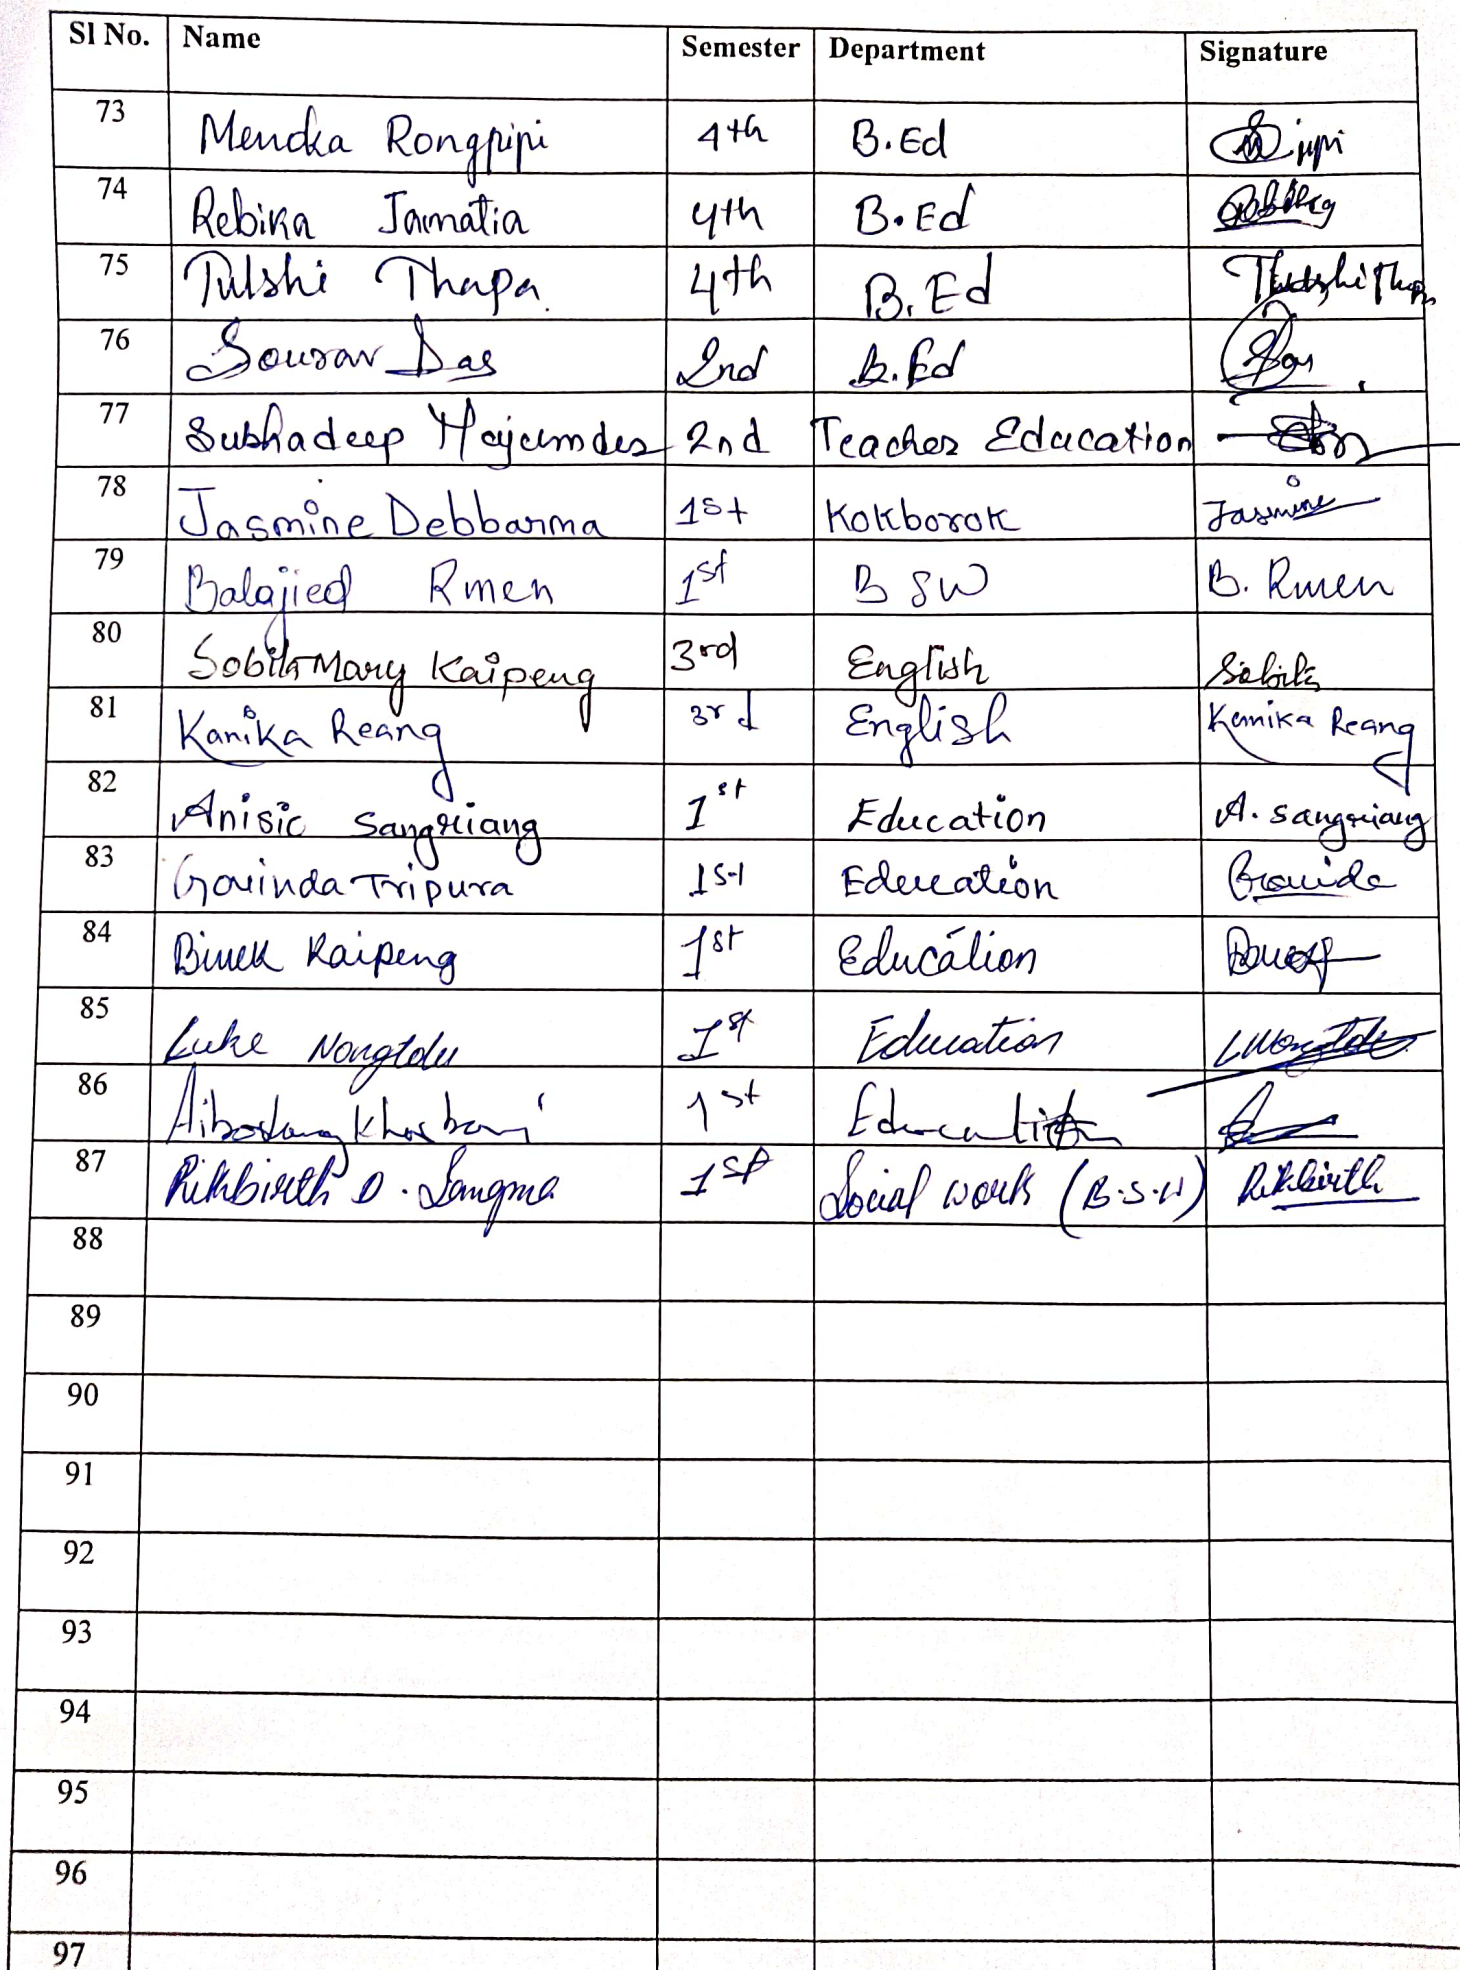 Sl No. Name Semester Department Signature
73 Menoka Rongpipi 4th B.Ed
74 Rebika Jamatia 4th B.Ed
75 Tulshi Thapa. 4th B.Ed
76 Sourav Das 2nd B.Ed Das
77 Subhadeep Majumder 2nd Teacher Education
78 Jasmine Debbarma 1st Kokborok Jasmine
79 Balajied Rmen 1st BSW B. Rmen
80 Sobita Mary Kaipeng 3rd English Sobita
81 Kanika Reang 3rd English Kanika Reang
82 Anisic Sangriang 1st Education A. Sangriang
83 Govinda Tripura 1st Education Govinda
84 Kaipeng 1st Education
85 Luke Nongtdu 1st Education LNongtdu
86 1st Education
87 Rikbirth D. Sangma 1st Social work (B.S.W) Rikbirth
88
89
90
91
92
93
94
95
96
97